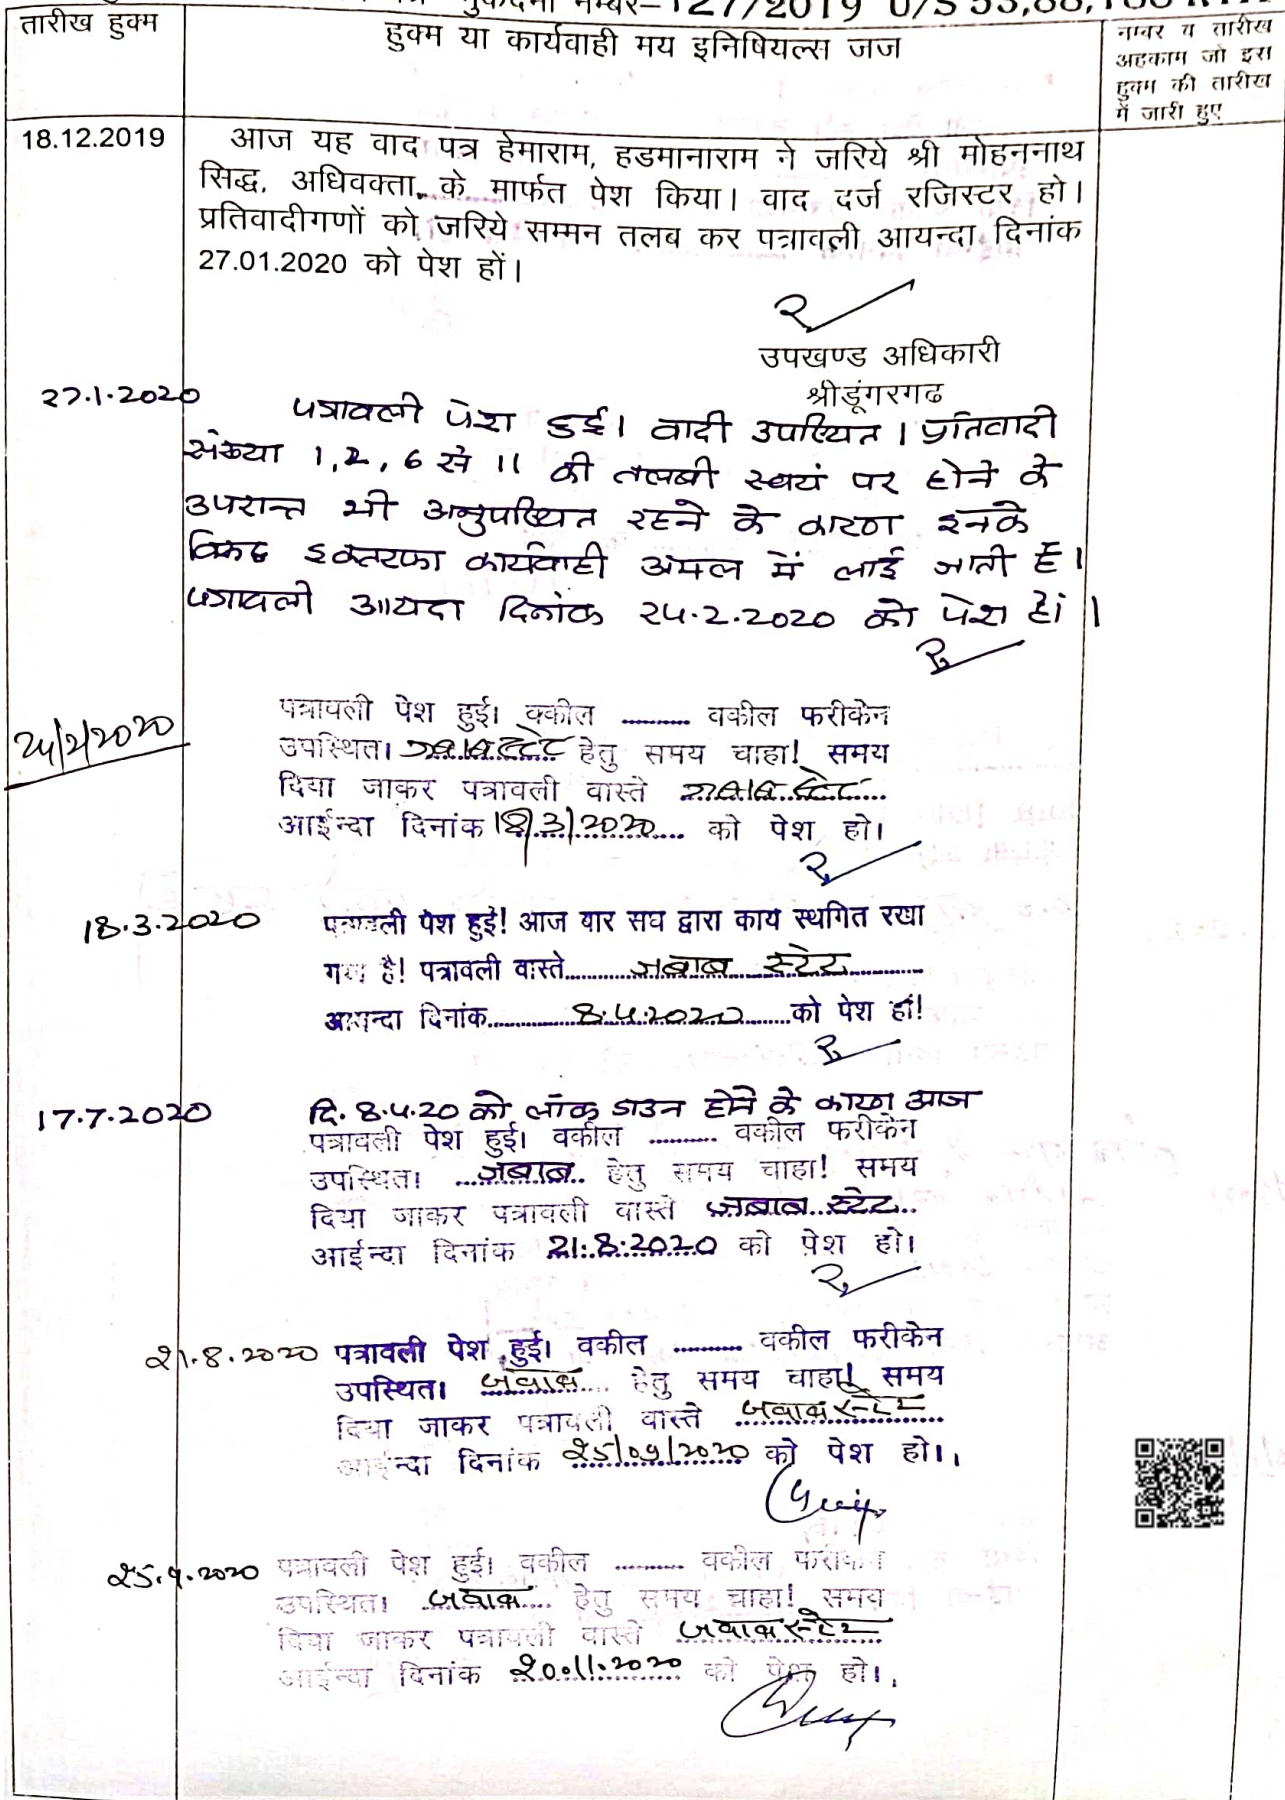 मुकदमा नम्बर– 127/2019 U/S 53,88,188
तारीख हुक्म
हुक्म या कार्यवाही मय इनिषियल्स जज
नम्बर व तारीख
अहकाम जो इस
हुक्म की तारीख
में जारी हुए
18.12.2019
आज यह वाद पत्र हेमाराम, हडमानाराम ने जरिये श्री मोहननाथ
सिद्ध, अधिवक्ता के मार्फत पेश किया। वाद दर्ज रजिस्टर हो।
प्रतिवादीगणों को जरिये सम्मन तलब कर पत्रावली आयन्दा दिनांक
27.01.2020 को पेश हों।
उपखण्ड अधिकारी
श्रीडूंगरगढ
27.1.2020
पत्रावली पेश हुई। वादी उपस्थित। प्रतिवादी
संख्या 1,2,6 से 11 की तलबी स्वयं पर होने के
उपरान्त भी अनुपस्थित रहने के कारण इनके
विरूद्ध इकतरफा कार्यवाही अमल में लाई जाती है।
पत्रावली आयंदा दिनांक 24.2.2020 को पेश हो।
24/2/2020
पत्रावली पेश हुई। वकील .......... वकील फरीकेन
उपस्थित। जवाब स्टेट हेतु समय चाहा! समय
दिया जाकर पत्रावली वास्ते जवाब स्टेट
आईन्दा दिनांक 18/3/2020 को पेश हो।
18.3.2020
पत्रावली पेश हुई! आज बार संघ द्वारा कार्य स्थगित रखा
गया है! पत्रावली वास्ते जबाब स्टेट
आयन्दा दिनांक 8.4.2020 को पेश हों!
17.7.2020
दि. 8.4.20 को लॉक डाउन होने के कारण आज
पत्रावली पेश हुई। वकील .......... वकील फरीकेन
उपस्थित। जबाब हेतु समय चाहा! समय
दिया जाकर पत्रावली वास्ते जबाब स्टेट
आईन्दा दिनांक 21.8.2020 को पेश हो।
21.8.2020
पत्रावली पेश हुई। वकील .......... वकील फरीकेन
उपस्थित। जवाब हेतु समय चाहा! समय
दिया जाकर पत्रावली वास्ते जवाब स्टेट
आईन्दा दिनांक 25/09/2020 को पेश हो।
25.9.2020
पत्रावली पेश हुई। वकील .......... वकील फरीकेन
उपस्थित। जवाब हेतु समय चाहा! समय
दिया जाकर पत्रावली वास्ते जवाब स्टेट
आईन्दा दिनांक 20.11.2020 को पेश हो।